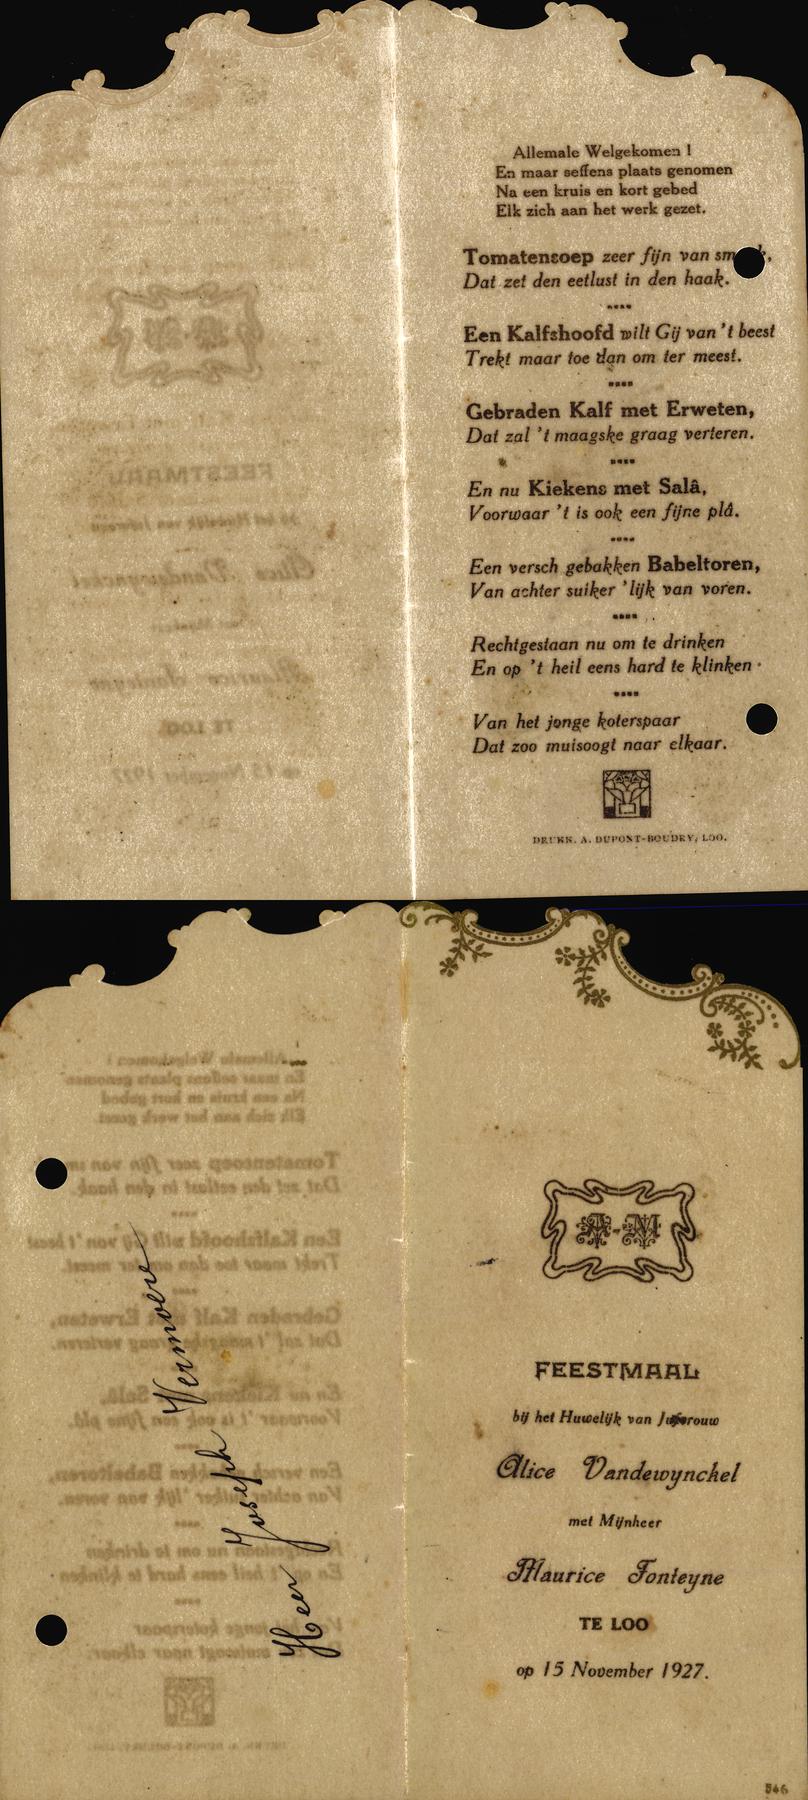 Allemale Welgekomen !
En maar seffens plaats genomen
Na een kruis en kort gebed
Elk zich aan het werk gezet.
Tomatensoep zeer fijn van
Dat zet den eetlust in den haak.
Een Kalfshoofd wilt Gij van 't beest
Trekt maar toe dan om ter meest.
Gebraden Kalf met Erweten,
Dat zal 't maagske graag verteren.
En nu Kiekens met Salâ,
Voorwaar 't is ook een fijne plâ.
Een versch gebakken Babeltoren,
Van achter suiker 'lijk van voren.
Rechtgestaan nu om te drinken
En op 't heil eens hard te klinken
Van het jonge koterspaar
Dat zoo muisoogt naar elkaar.
DRUKK. A. DUPONT-BOUDRY, LOO.
Heer Joseph Vermoere
A-M
FEESTMAAL
bij het Huwelijk van Juffrouw
Alice Vandewynckel
met Mijnheer
Maurice Fonteyne
TE LOO
op 15 November 1927.
546